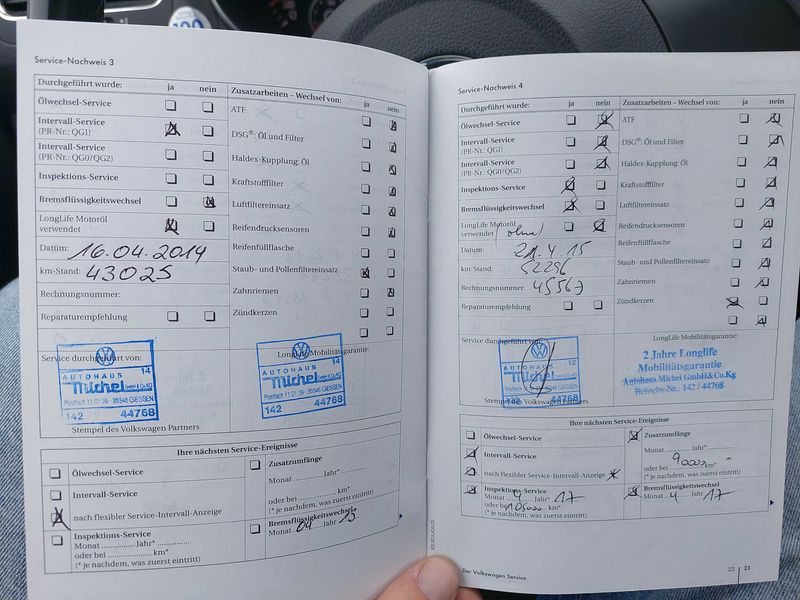 Service-Nachweis 3
Durchgeführt wurde: ja nein
Ölwechsel-Service
Intervall-Service
(PR-Nr.: QG1)
Intervall-Service
(PR-Nr.: QG0/QG2)
Inspektions-Service
Bremsflüssigkeitswechsel
LongLife Motoröl
verwendet
Datum: 16.04.2014
km-Stand: 43025
Rechnungsnummer:
Reparaturempfehlung
Zusatzarbeiten – Wechsel von: ja nein
ATF
DSG®: Öl und Filter
Haldex-Kupplung: Öl
Kraftstofffilter
Luftfiltereinsatz
Reifendrucksensoren
Reifenfüllflasche
Staub- und Pollenfiltereinsatz
Zahnriemen
Zündkerzen
Service durchgeführt von:
14
AUTOHAUS
Michel GmbH & Co.KG
Postfach 11 01 29 · 35346 GIESSEN
142 44768
Stempel des Volkswagen Partners
LongLife Mobilitätsgarantie:
14
AUTOHAUS
Michel GmbH & Co.KG
Postfach 11 01 29 · 35346 GIESSEN
142 44768
Ihre nächsten Service-Ereignisse
Ölwechsel-Service
Intervall-Service
nach flexibler Service-Intervall-Anzeige
Inspektions-Service
Monat .............. Jahr*..............
oder bei .................. km*
(* je nachdem, was zuerst eintritt)
Zusatzumfänge
Monat .............. Jahr*..............
oder bei .................. km*
(* je nachdem, was zuerst eintritt)
Bremsflüssigkeitswechsel
Monat 04 Jahr 15
Service-Nachweis 4
Durchgeführt wurde: ja nein
Ölwechsel-Service
Intervall-Service
(PR-Nr.: QG1)
Intervall-Service
(PR-Nr.: QG0/QG2)
Inspektions-Service
Bremsflüssigkeitswechsel
LongLife Motoröl
verwendet (ohne)
Datum: 21.4.15
km-Stand: 52296
Rechnungsnummer: 45567
Reparaturempfehlung
Zusatzarbeiten – Wechsel von: ja nein
ATF
DSG®: Öl und Filter
Haldex-Kupplung: Öl
Kraftstofffilter
Luftfiltereinsatz
Reifendrucksensoren
Reifenfüllflasche
Staub- und Pollenfiltereinsatz
Zahnriemen
Zündkerzen
Service durchgeführt von:
12
AUTOHAUS
Michel
142 44768
Stempel des Volkswagen Partners
LongLife Mobilitätsgarantie:
2 Jahre Longlife
Mobilitätsgarantie
Autohaus Michel GmbH&Co.Kg
Betriebs-Nr. 142/44768
Ihre nächsten Service-Ereignisse
Ölwechsel-Service
Intervall-Service
nach flexibler Service-Intervall-Anzeige
Inspektions-Service
Monat 4 Jahr 17
oder bei 105000 km*
(* je nachdem, was zuerst eintritt)
Zusatzumfänge
Monat .............. Jahr*..............
oder bei 90000 km*
(* je nachdem, was zuerst eintritt)
Bremsflüssigkeitswechsel
Monat 4 Jahr 17
Der Volkswagen Service
22 | 23